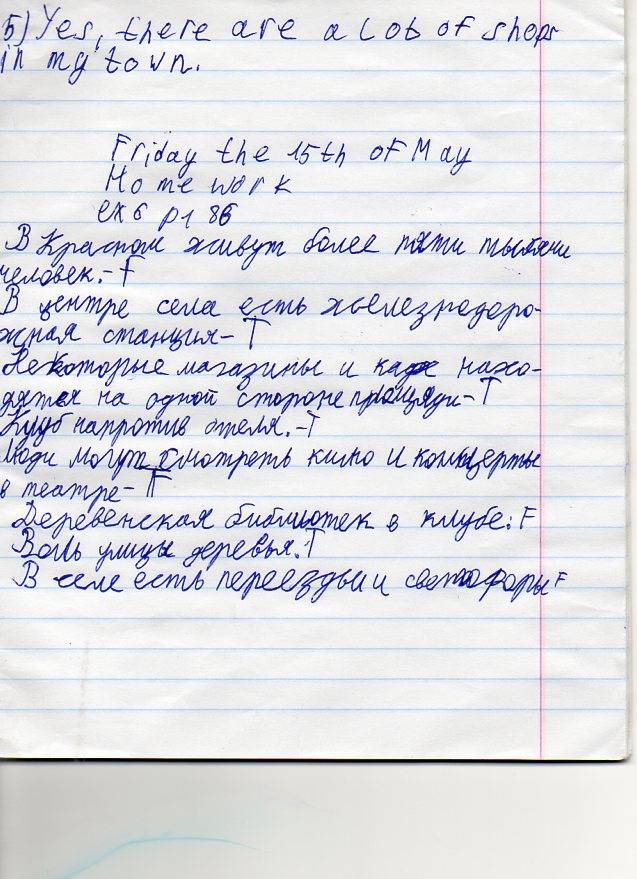 5) Yes, there are a lot of shops
in my town.
Friday the 15th of May
Home work
ex 6 p 86
В Красном живут более пяти тысячи
человек. - F
В центре села есть железнодоро-
жная станция - T
Некоторые магазины и кафе нахо-
дятся на одной стороне площади - T
Клуб напротив отеля. - T
Люди могут смотреть кино и концерты
в театре - F
Деревенская библиотек в клубе: F
Воль улицы деревья. T
В селе есть переезды и светофоры F